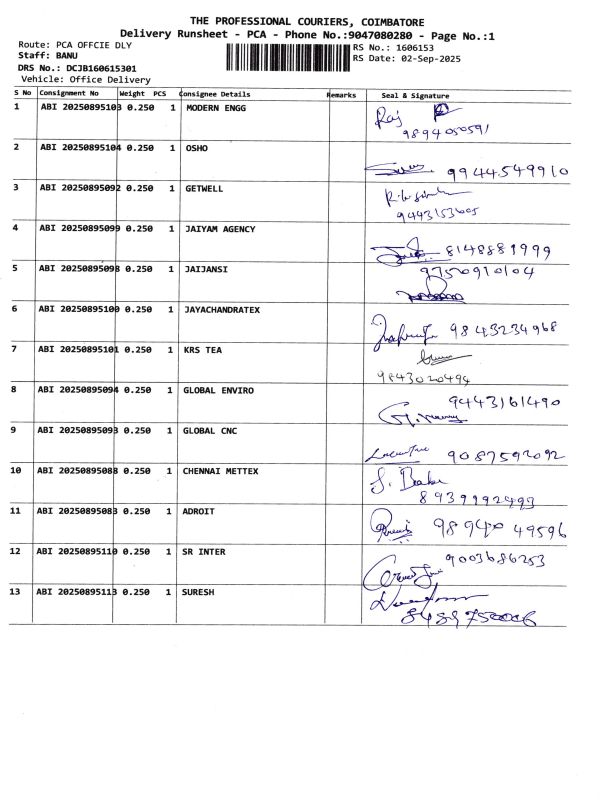 THE PROFESSIONAL COURIERS, COIMBATORE
Delivery Runsheet - PCA - Phone No.:9047080280 - Page No.:1
Route: PCA OFFCIE DLY RS No.: 1606153
Staff: BANU RS Date: 02-Sep-2025
DRS No.: DCJB160615301
Vehicle: Office Delivery
S No Consignment No Weight PCS Consignee Details Remarks Seal & Signature
1 ABI 20250895103 0.250 1 MODERN ENGG Raj
9894050591
2 ABI 20250895104 0.250 1 OSHO 9944549910
3 ABI 20250895092 0.250 1 GETWELL
9443153605
4 ABI 20250895099 0.250 1 JAIYAM AGENCY 8148881999
5 ABI 20250895098 0.250 1 JAIJANSI 9750910104
6 ABI 20250895100 0.250 1 JAYACHANDRATEX 9843234968
7 ABI 20250895101 0.250 1 KRS TEA
9843020494
8 ABI 20250895094 0.250 1 GLOBAL ENVIRO 9443161490
9 ABI 20250895093 0.250 1 GLOBAL CNC 9087592092
10 ABI 20250895088 0.250 1 CHENNAI METTEX
8939992493
11 ABI 20250895083 0.250 1 ADROIT 98940 49596
12 ABI 20250895110 0.250 1 SR INTER 9003686253
13 ABI 20250895113 0.250 1 SURESH
8489750006